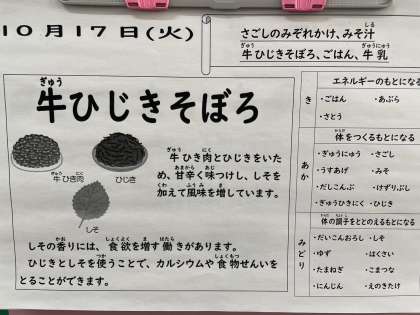 10月17日(火)
さごしのみぞれかけ、みそ汁
牛ひじきそぼろ、ごはん、牛乳
牛ひじきそぼろ
牛ひき肉
ひじき
しそ
牛ひき肉とひじきをいた
め、甘辛く味つけし、しそを
加えて風味を増しています。
しその香りには、食欲を増す働きがあります。
ひじきとしそを使うことで、カルシウムや食物せんいを
とることができます。
エネルギーのもとになる
き
・ごはん ・あぶら
・さとう
体をつくるもとになる
あか
・ぎゅうにゅう ・さごし
・うすあげ ・みそ
・だしこんぶ ・けずりぶし
・ぎゅうひきにく ・ひじき
体の調子をととのえるもとになる
みどり
・だいこんおろし ・しそ
・ゆず ・はくさい
・たまねぎ ・こまつな
・にんじん ・えのきたけ